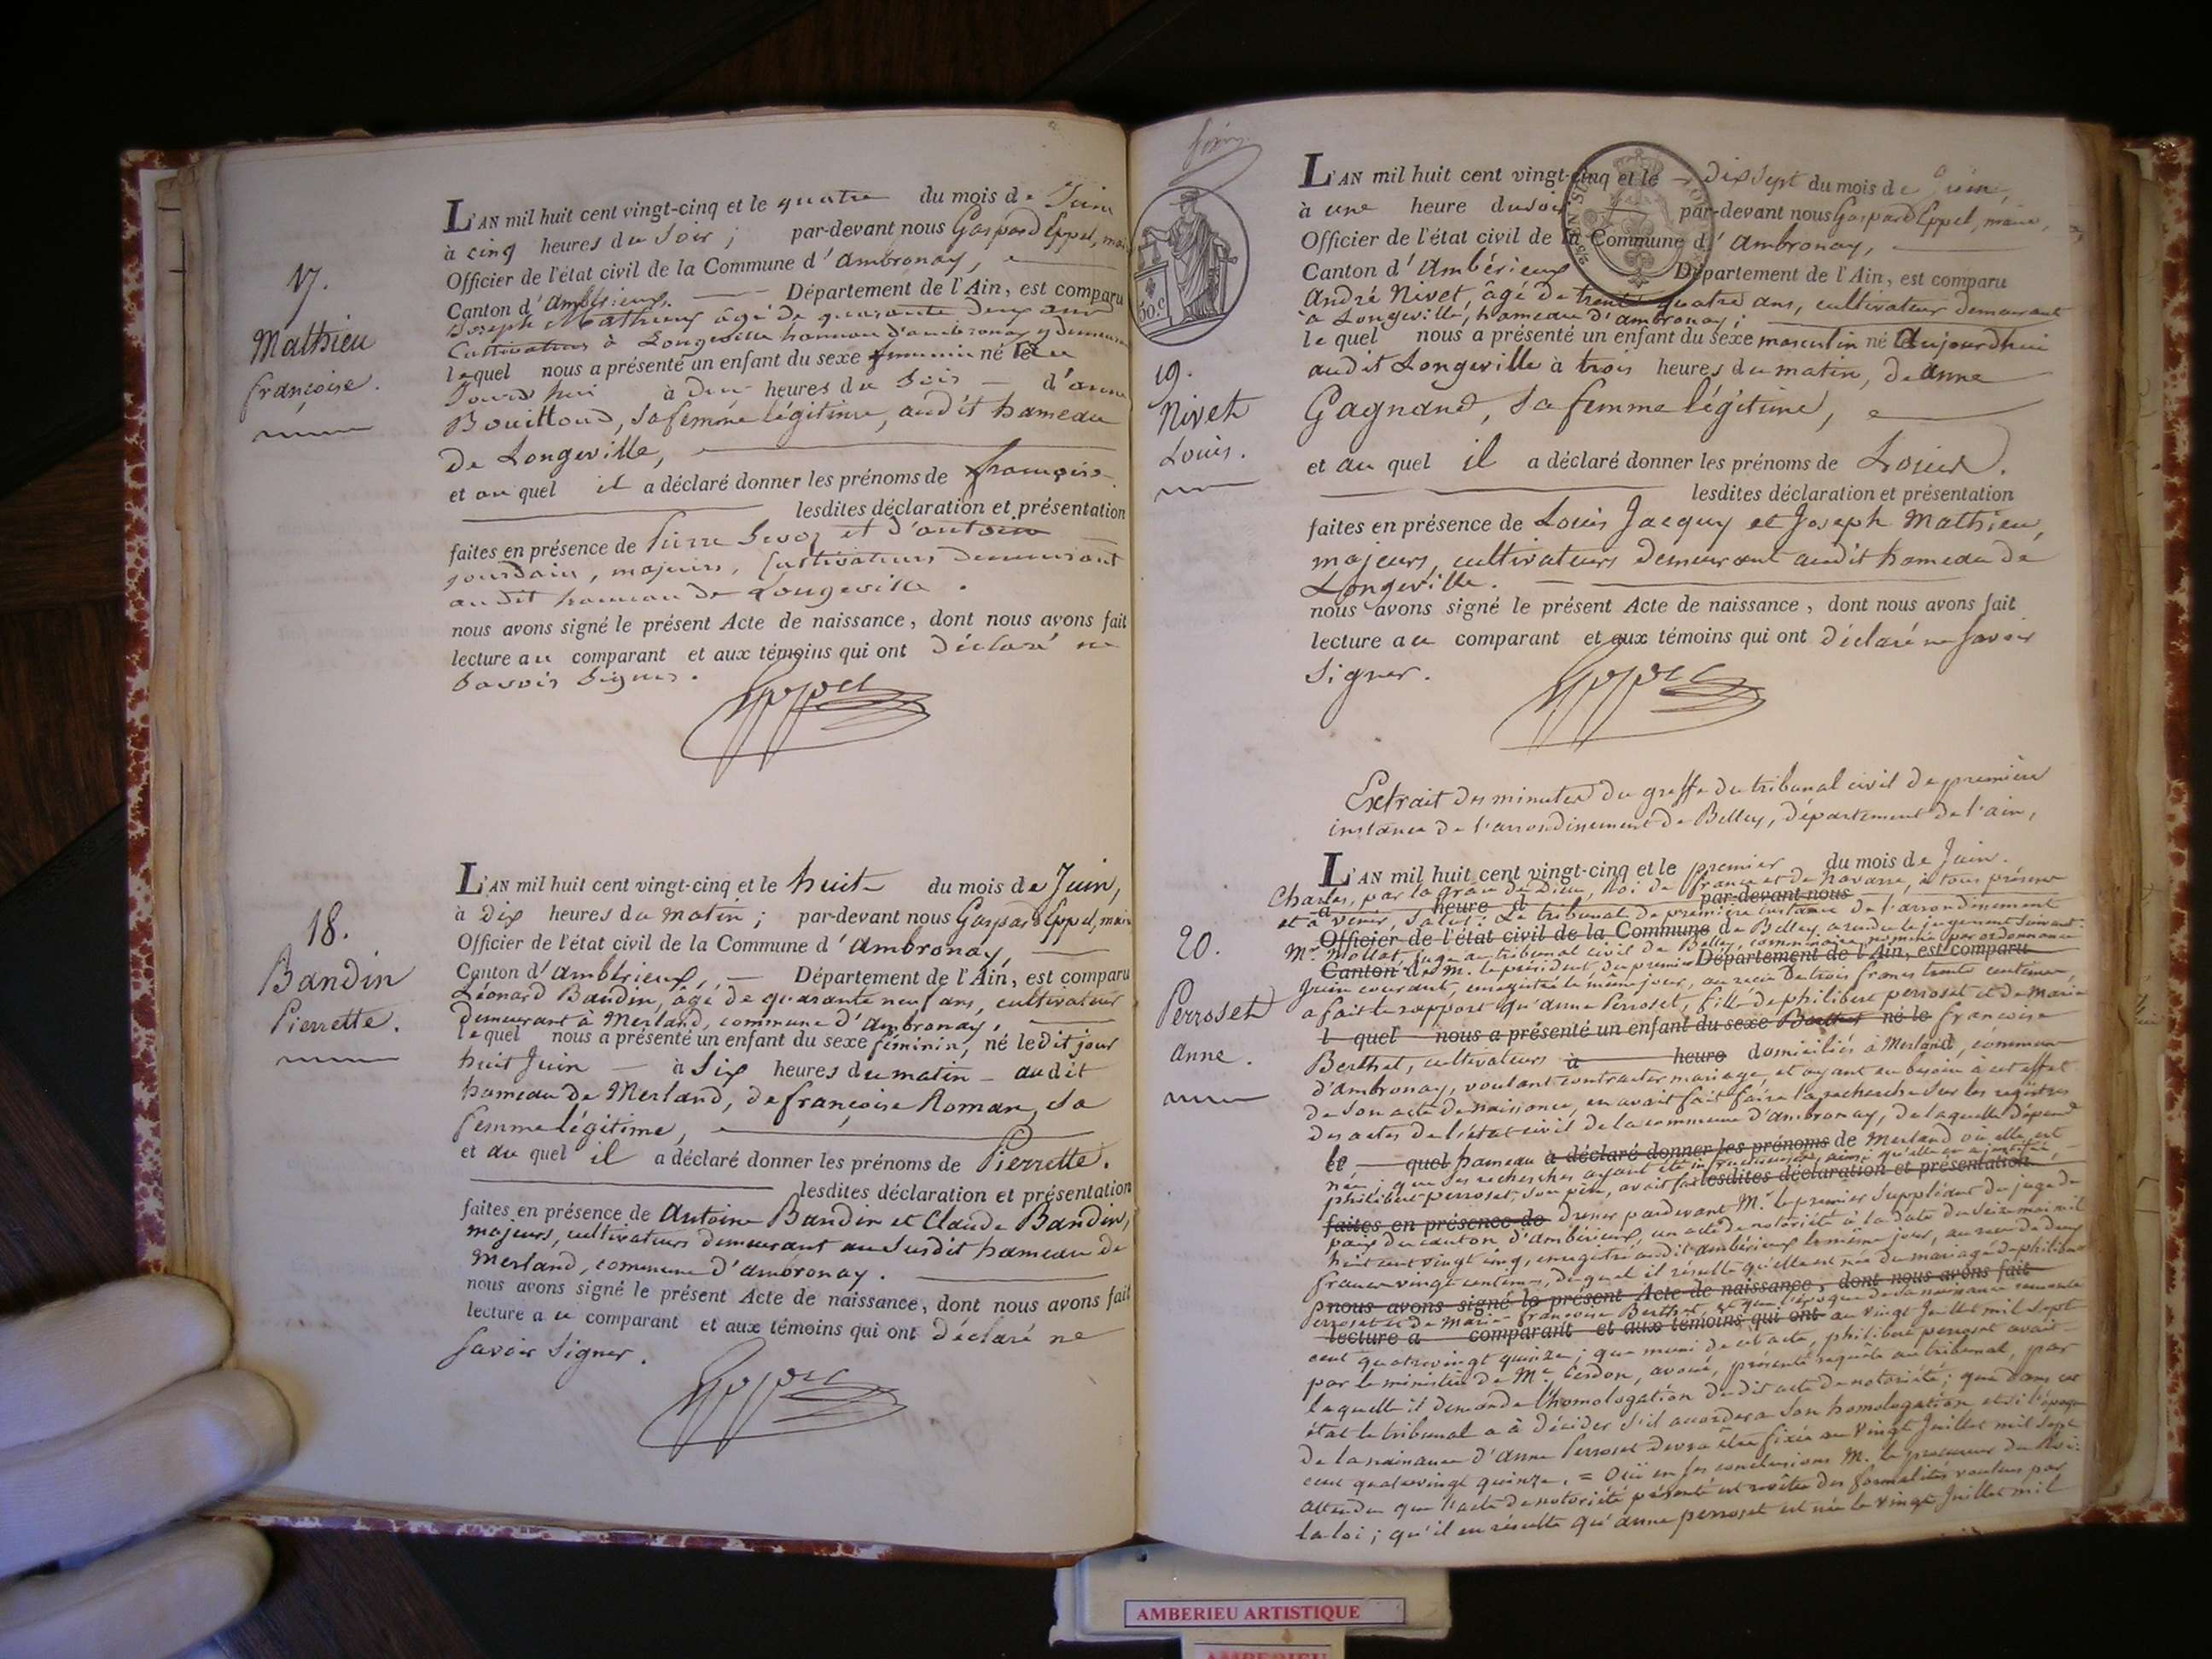 17.
Mathieu
françoise.
L'AN mil huit cent vingt-cinq et le quatre du mois de Juin
à cinq heures du Soir ; par-devant nous Gaspard Eppel, mai
Officier de l'état civil de la Commune d'ambronay,
Canton d'ambérieux. Département de l'Ain, est comparu
Joseph Mathieu âgé de quarante deux ans
Cultivateur à Longeville hameau d'ambronay y demeurant
lequel nous a présenté un enfant du sexe feminin né le au
Jourd'hui à deux heures du Soir d'anne
Bouilloud, sa femme légitime, audit hameau
de Longeville,
et au quel il a déclaré donner les prénoms de françoise.
lesdites déclaration et présentation
faites en présence de Pierre et d'antoine
jourdain, majeurs, Cultivateurs demeurant
audit hameau de Longeville.
nous avons signé le présent Acte de naissance, dont nous avons fait
lecture au comparant et aux témoins qui ont Déclaré ne
Savoir Signer.
Eppel
18.
Bandin
Pierrette.
L'AN mil huit cent vingt-cinq et le huit du mois de Juin,
à dix heures du matin ; par-devant nous Gaspard Eppel, maire
Officier de l'état civil de la Commune d'ambronay,
Canton d'ambérieux, Département de l'Ain, est comparu
Léonard Bandin, âgé de quarante neuf ans, cultivateur
demeurant à Merland, commune d'ambronay,
lequel nous a présenté un enfant du sexe féminin, né ledit jour
huit Juin à Six heures du matin audit
hameau de Merland, de françoise Roman, sa
femme légitime,
et au quel il a déclaré donner les prénoms de Pierrette.
lesdites déclaration et présentation
faites en présence de Antoine Bandin et Claude Bandin,
majeurs, cultivateurs demeurant au susdit hameau de
Merland, commune d'ambronay.
nous avons signé le présent Acte de naissance, dont nous avons fait
lecture au comparant et aux témoins qui ont Déclaré ne
savoir signer.
Eppel
50.c
19.
Nivet
Louis.
L'AN mil huit cent vingt-cinq et le dix sept du mois de Juin,
à une heure du soir par-devant nous Gaspard Eppel, maire,
Officier de l'état civil de la Commune d'ambronay,
Canton d'ambérieux Département de l'Ain, est comparu
André Nivet, âgé de trente quatre ans, cultivateur demeurant
à Longeville, hameau d'ambronay ;
lequel nous a présenté un enfant du sexe masculin né aujourdhui
audit Longeville à trois heures du matin, de anne
Gagnand, sa femme légitime,
et au quel il a déclaré donner les prénoms de Louis.
lesdites déclaration et présentation
faites en présence de Louis Jacquy et Joseph Mathieu,
majeurs, cultivateurs demeurant audit hameau de
Longeville.
nous avons signé le présent Acte de naissance, dont nous avons fait
lecture au comparant et aux témoins qui ont Déclaré ne savoir
Signer.
Eppel
Extrait des minutes du greffe du tribunal civil de première
instance de l'arrondissement de Belley, département de l'ain,
20.
Perroset
anne.
L'AN mil huit cent vingt-cinq et le premier du mois de Juin.
Charles, par la grâce de Dieu, Roi de france et de navarre, à tous présens
à heure d par-devant nous
et à venir, Salut. Le tribunal de première instance de l'arrondissement
Officier de l'état civil de la Commune de Belley a rendu le jugement suivant :
Mr. Mollat, juge au tribunal civil de Belley, commissaire nommé par ordonnance
Canton de M. le président, du premier Département de l'Ain, est comparu
Juin courant, enregistrée le même jour, au reçu de trois francs trente centimes,
a fait le rapport qu'anne Perroset, fille de philibert perroset et de Marie
l quel nous a présenté un enfant du sexe né le françoise
Berthet, cultivateurs à heure domiciliés à Merland, commune
d'ambronay, voulant contracter mariage, et ayant eu besoin à cet effet
de son acte de naissance, en avait fait faire la recherche sur les registres
des actes de l'état civil de la commune d'ambronay, de laquelle dépend
le quel hameau a déclaré donner les prénoms de Merland où elle est
née ; que ses recherches ayant été infructueuses, ainsi qu'elle en a justifié,
philibert perroset, son père, avait fait lesdites déclaration et présentation
faites en présence de dresser pardevant Mr. le premier suppléant du juge de
paix du canton d'ambérieux, un acte de notoriété à la date du seize mai mil
huit cent vingt cinq, enregistré audit ambérieux le même jour, au reçu de deux
francs vingt centimes, duquel il résulte qu'elle est née du mariage de philibert
nous avons signé le présent Acte de naissance, dont nous avons fait
Perroset et de Marie françoise Berthet, et que l'époque de sa naissance remonte
lecture a comparant et aux témoins qui ont au vingt Juillet mil sept
cent quatrevingt quinze ; que muni de cet acte, philibert perroset avait
par le ministère de Me. Cerdon, avoué, présenté requête au tribunal, par
laquelle il demande l'homologation dudit acte de notoriété ; que dans cet
état le tribunal a à décider s'il accordera son homologation et si l'époque
de la naissance d'anne Perroset devra être fixée au vingt Juillet mil sept
cent quatrevingt quinze. = Oui en ses conclusions M. le procureur du Roi :
attendu que l'acte de notoriété présenté est revêtu des formalités voulues par
la loi ; qu'il en résulte qu'anne perroset est née le vingt Juillet mil
AMBERIEU ARTISTIQUE
AMBERIEU